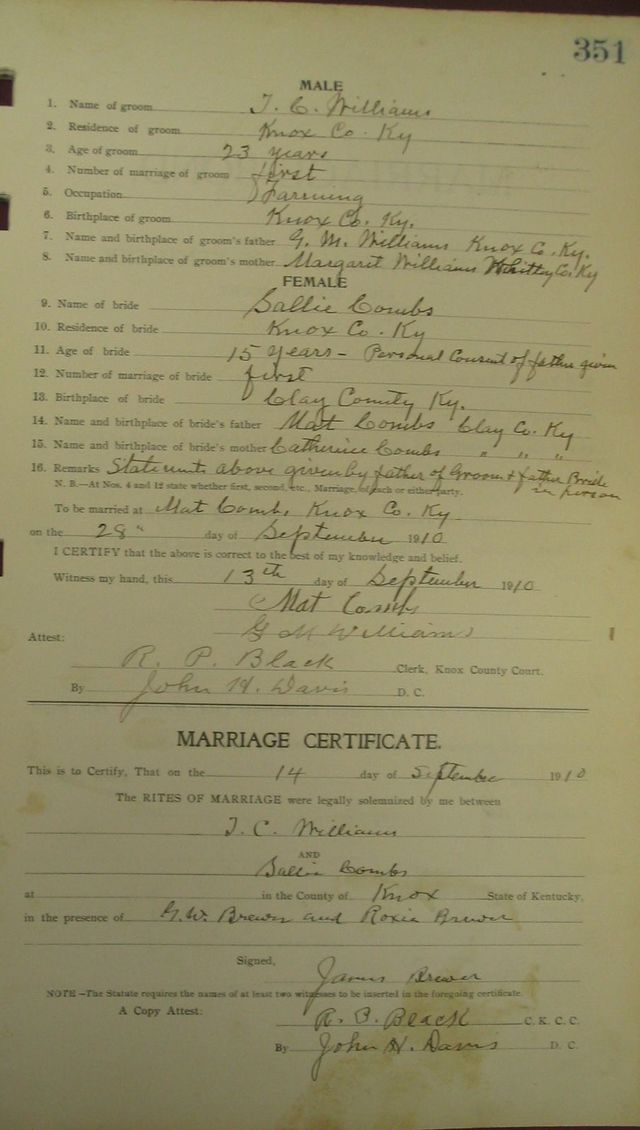 351
MALE
1. Name of groom J. C. Williams
2. Residence of groom Knox Co. Ky
3. Age of groom 23 years
4. Number of marriage of groom first
5. Occupation Farming
6. Birthplace of groom Knox Co. Ky.
7. Name and birthplace of groom's father G. M. Williams Knox Co. Ky.
8. Name and birthplace of groom's mother Margaret Williams Whitley Co. Ky
FEMALE
9. Name of bride Sallie Combs
10. Residence of bride Knox Co. Ky
11. Age of bride 15 years - Personal Consent of father given
12. Number of marriage of bride first
13. Birthplace of bride Clay County Ky.
14. Name and birthplace of bride's father Mat Combs Clay Co. Ky
15. Name and birthplace of bride's mother Catherine Combs " " "
16. Remarks Statements above given by father of Groom & father Bride
in person
N. B.—At Nos. 4 and 12 state whether first, second, etc., Marriage of each or either party.
To be married at Mat Combs Knox Co. Ky
on the 28" day of September 1910
I CERTIFY that the above is correct to the best of my knowledge and belief.
Witness my hand, this 13th day of September 1910
Mat Combs
G M Williams
Attest:
R. P. Black Clerk, Knox County Court.
By John H. Davis D. C.
MARRIAGE CERTIFICATE.
This is to Certify, That on the 14 day of September 1910
The RITES OF MARRIAGE were legally solemnized by me between
J. C. Williams
AND
Sallie Combs
at in the County of Knox State of Kentucky,
in the presence of G. W. Brewer and Roxie Brewer
Signed,
James Brewer
NOTE—The Statute requires the names of at least two witnesses to be inserted in the foregoing certificate.
A Copy Attest:
R. P. Black C. K. C. C.
By John H. Davis D. C.